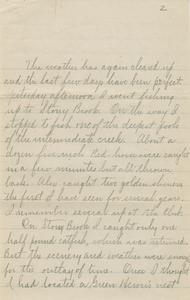 2
The weather has again cleared up
and the last few days have been perfect.
Yesterday afternoon I went fishing
up Stony Brook. On the way I
stopped to fish one of the deepest pools
of the intermediate creek. About a
dozen five inch Red were caught
in a few minutes but all thrown
back. Also caught two golden shiners
the first I have seen for several years.
I remember several up at the Club.
On Stony Brook I caught only one
half pound catfish, which was returned
But the scenery and weather were away
for the outlay of time. Once I thought
I had located a Green Heron's nest